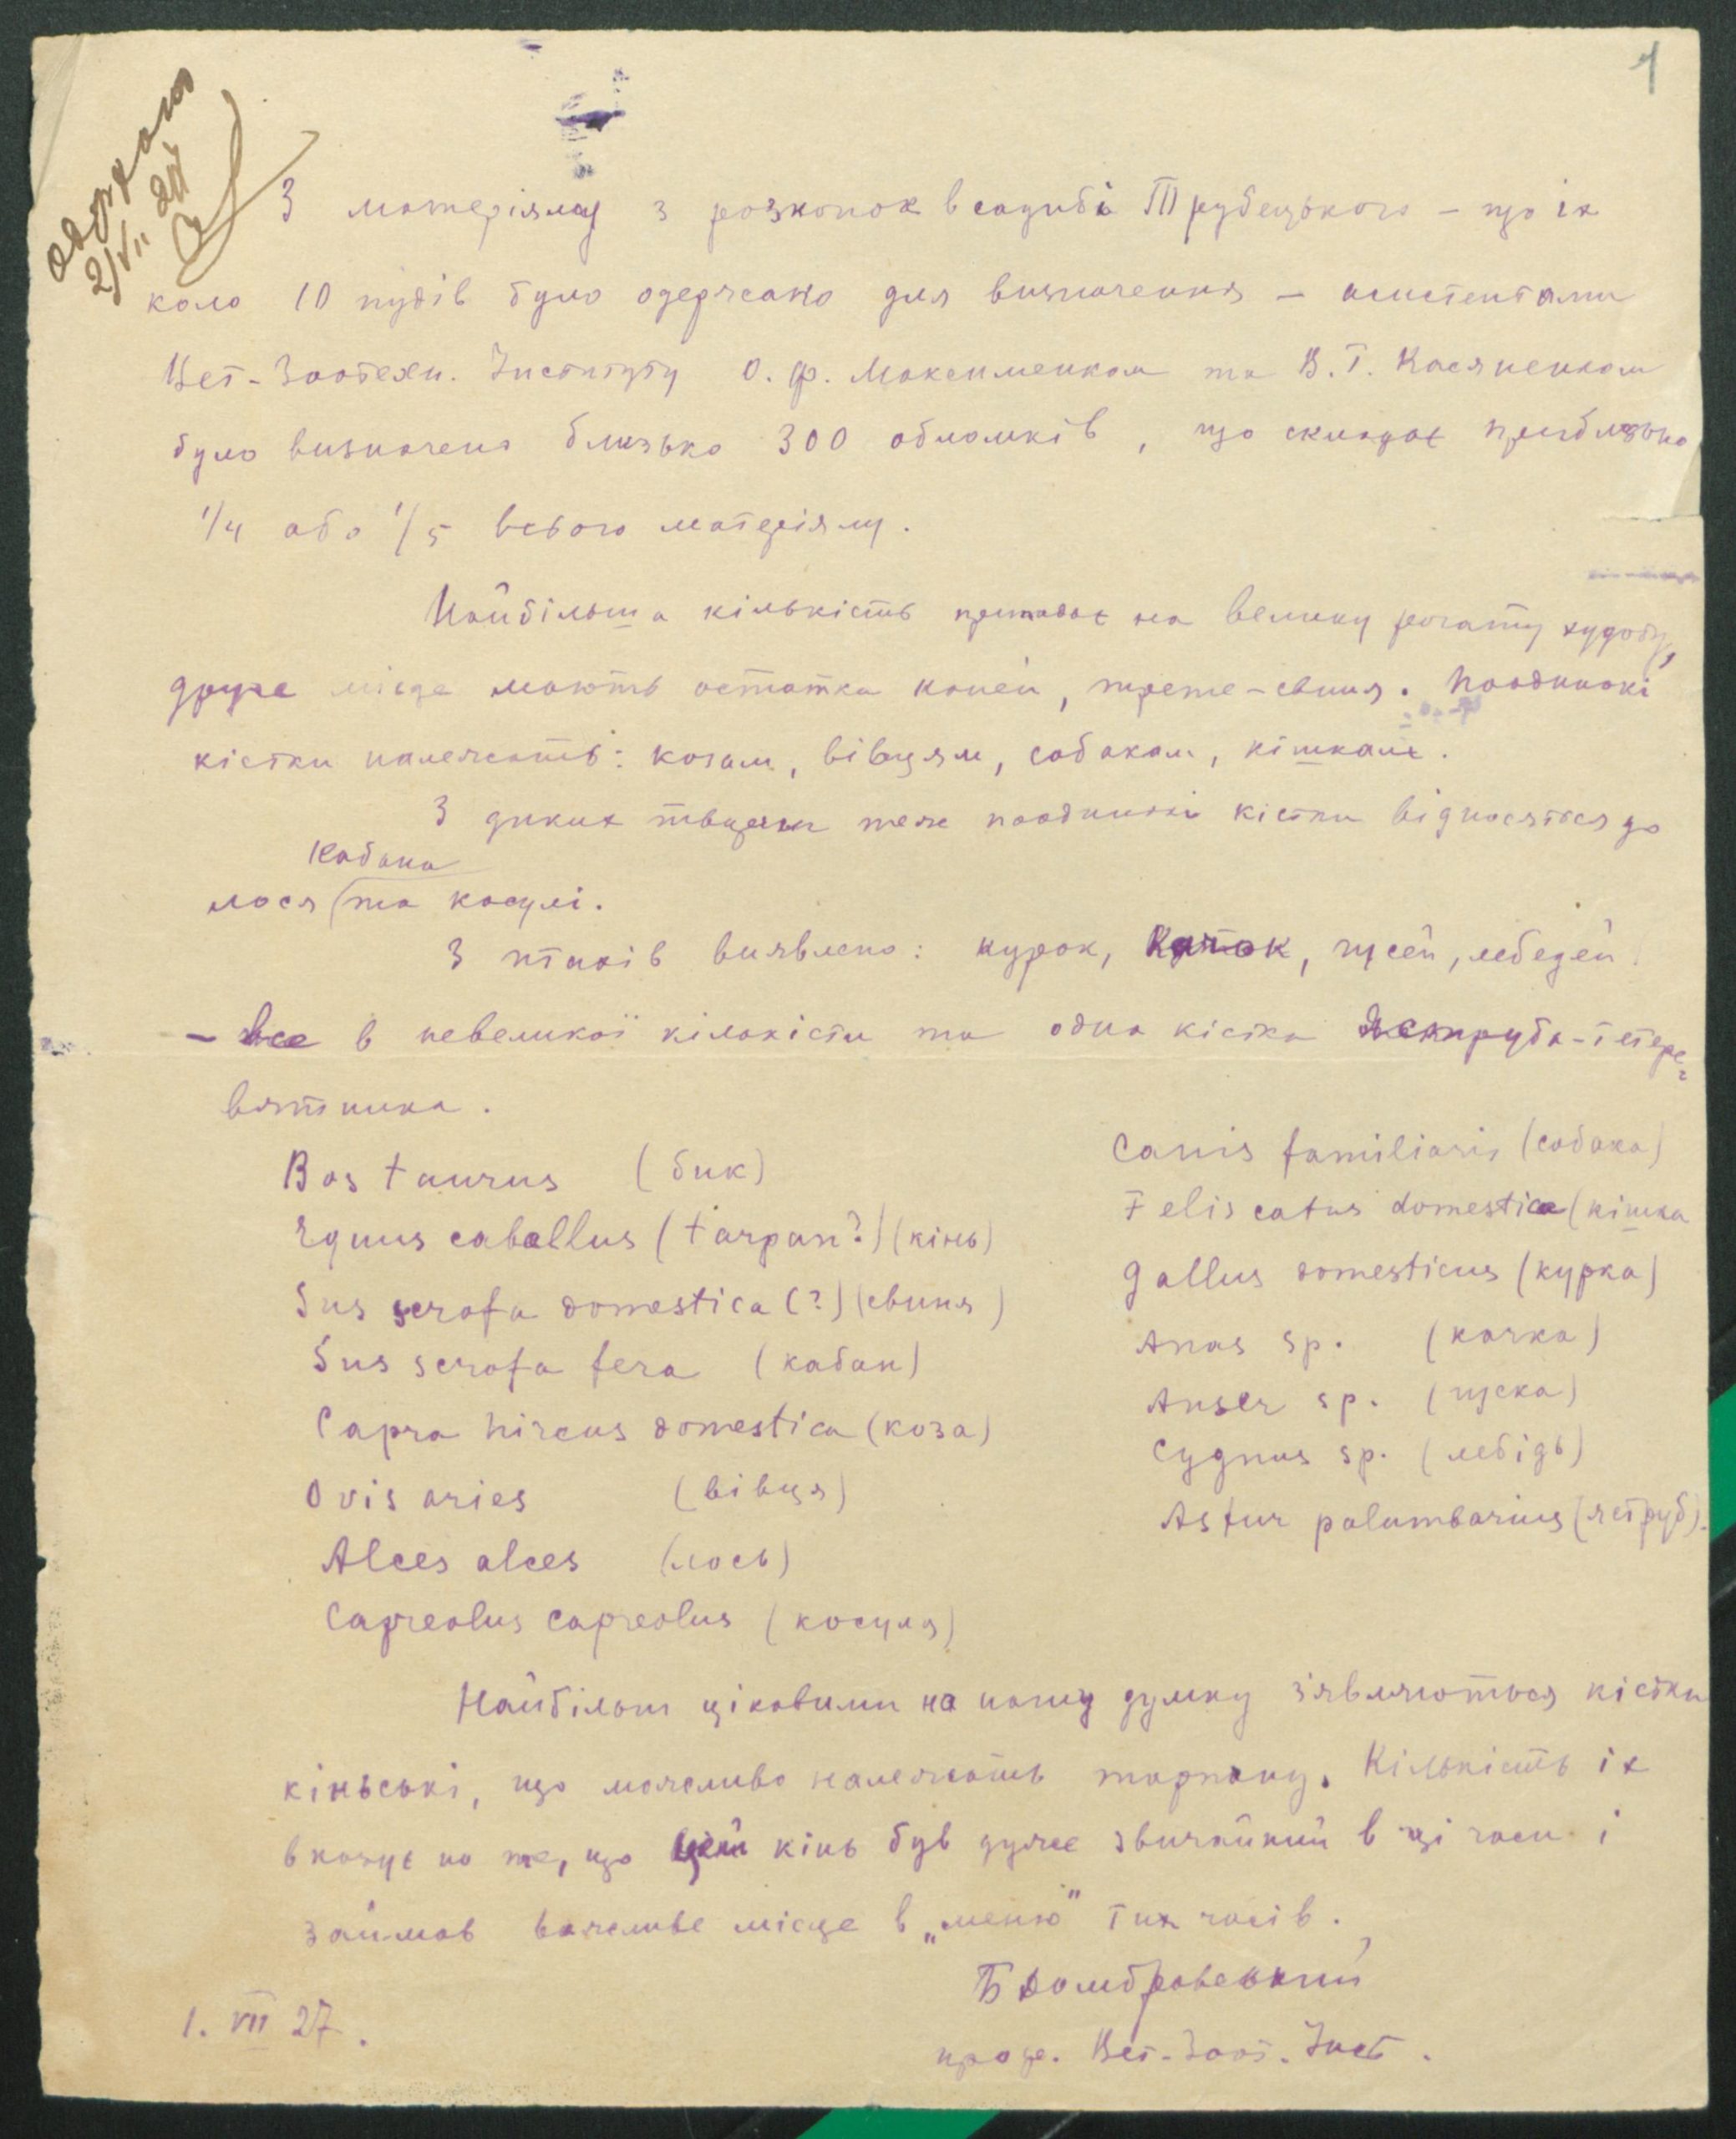 1
одержано
2/VII 27
З матеріялу з розкопок в садибі Трубецького – що їх
коло 10 пудів було одержано для визначення – асистентами
Вет-Зоотехн. Інституту О. Ф. Максименком та В. Г. Касяненком
було визначено близько 300 обломків, що складає приблизно
1/4 або 1/5 всього матеріялу.
Найбільша кількість припадає на велику рогату худобу,
друге місце мають остатки коней, трете – свиня. Поодинокі
кістки належать: козам, вівцям, собакам, кішкам.
З диких тварин теж поодинокі кістки відносяться до
кабана
лося та косулі.
З птахів виявлено: курок, качок, гусей, лебедей
– все в невеликої кількісти та одна кістка яструба-тетере-
вятника.
Bos taurus (бик)
Equus caballus (tarpan?) (кінь)
Sus scrofa domestica (?) (свиня)
Sus scrofa fera (кабан)
Capra hircus domestica (коза)
Ovis aries (вівця)
Alces alces (лось)
Capreolus capreolus (косуля)
Canis familiaris (собака)
Felis catus domestica (кішка
Gallus domesticus (курка)
Anas sp. (качка)
Anser sp. (гуска)
Cygnus sp. (лебідь)
Astur palumbarius (яструб).
Найбільш цікавими на нашу думку зʼявляються кістки
кінські, що можливо належать тарпану. Кількість їх
вказує на те, що цей кінь був дуже звичайний в ці часи і
займав важливе місце в „меню" тих часів.
Б Домбровський
1. VII 27.
проф. Вет-Зоот. Инст.